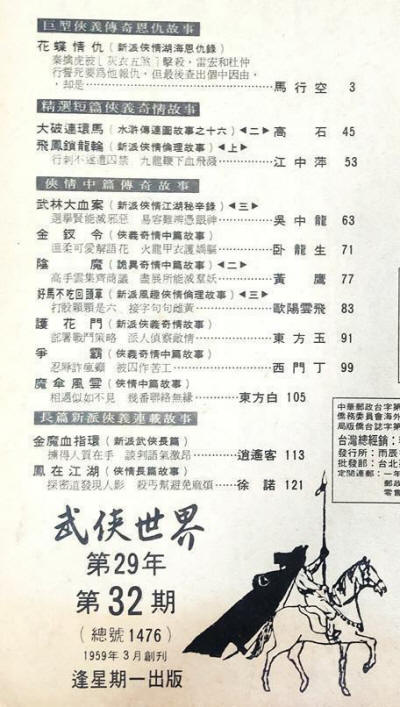 巨型俠義傳奇恩仇故事
花蝶情仇（新派俠情湖海恩仇錄）
秦擒虎被〔灰衣五煞〕擊殺，雷宏和杜仲
行誓死要爲他報仇，但最後查出個中因由，
却是⋯⋯馬行空 3
精選短篇俠義奇情故事
大破連環馬（水滸傳連圖故事之十六）◀二▶高石 45
飛鳳鎖龍輪（新派俠情倫理故事）◀上▶
行刺不遂遭囚禁 九龍鞭下血飛濺⋯⋯江中萍 53
俠情中篇傳奇故事
武林大血案（新派俠情江湖秘辛錄）◀三▶
選擧賢能滅邪惡 易容難掩憑眼神⋯⋯吳中龍 63
金釵令（俠義奇情中篇故事）
溫柔可愛解語花 火龍甲衣護嬌軀⋯⋯卧龍生 71
陰魔（詭異奇情中篇故事）◀二▶
高手雲集齊商議 盡展所能滅羣妖⋯⋯黃鷹 77
好馬不吃回頭草（新派風趣俠情倫理故事）◀三▶
打骰顆顆是六、接字句句雌黃⋯⋯歐陽雲飛 83
護花門（新派俠義奇情故事）
部署戰鬥策略 派人偵察敵情⋯⋯東方玉 91
爭霸（俠義情中篇故事）
忍辱詐瘋癲 被囚作苦工⋯⋯西門丁 99
魔傘風雲（俠情中篇故事）
相遇似如不見 幾番聯絡無緣⋯⋯東方白 105
長篇新派俠義連載故事
金魔血指環（新派武俠長篇）
擄得人質在手 談判語氣激昂⋯⋯逍遙客 113
鳳在江湖（俠情長篇故事）
探密道發現人影 殺丐幫避免麻煩⋯⋯徐諾 121
武俠世界
第29年
第32期
（總號1476）
1959年3月創刊
逢星期一出版
中華郵政台字第
僑務委員會海外
局版僑台誌字第
台灣總經銷：
發行所：雨辰
批發部：台北
定閱連郵：一年
郵政
零售